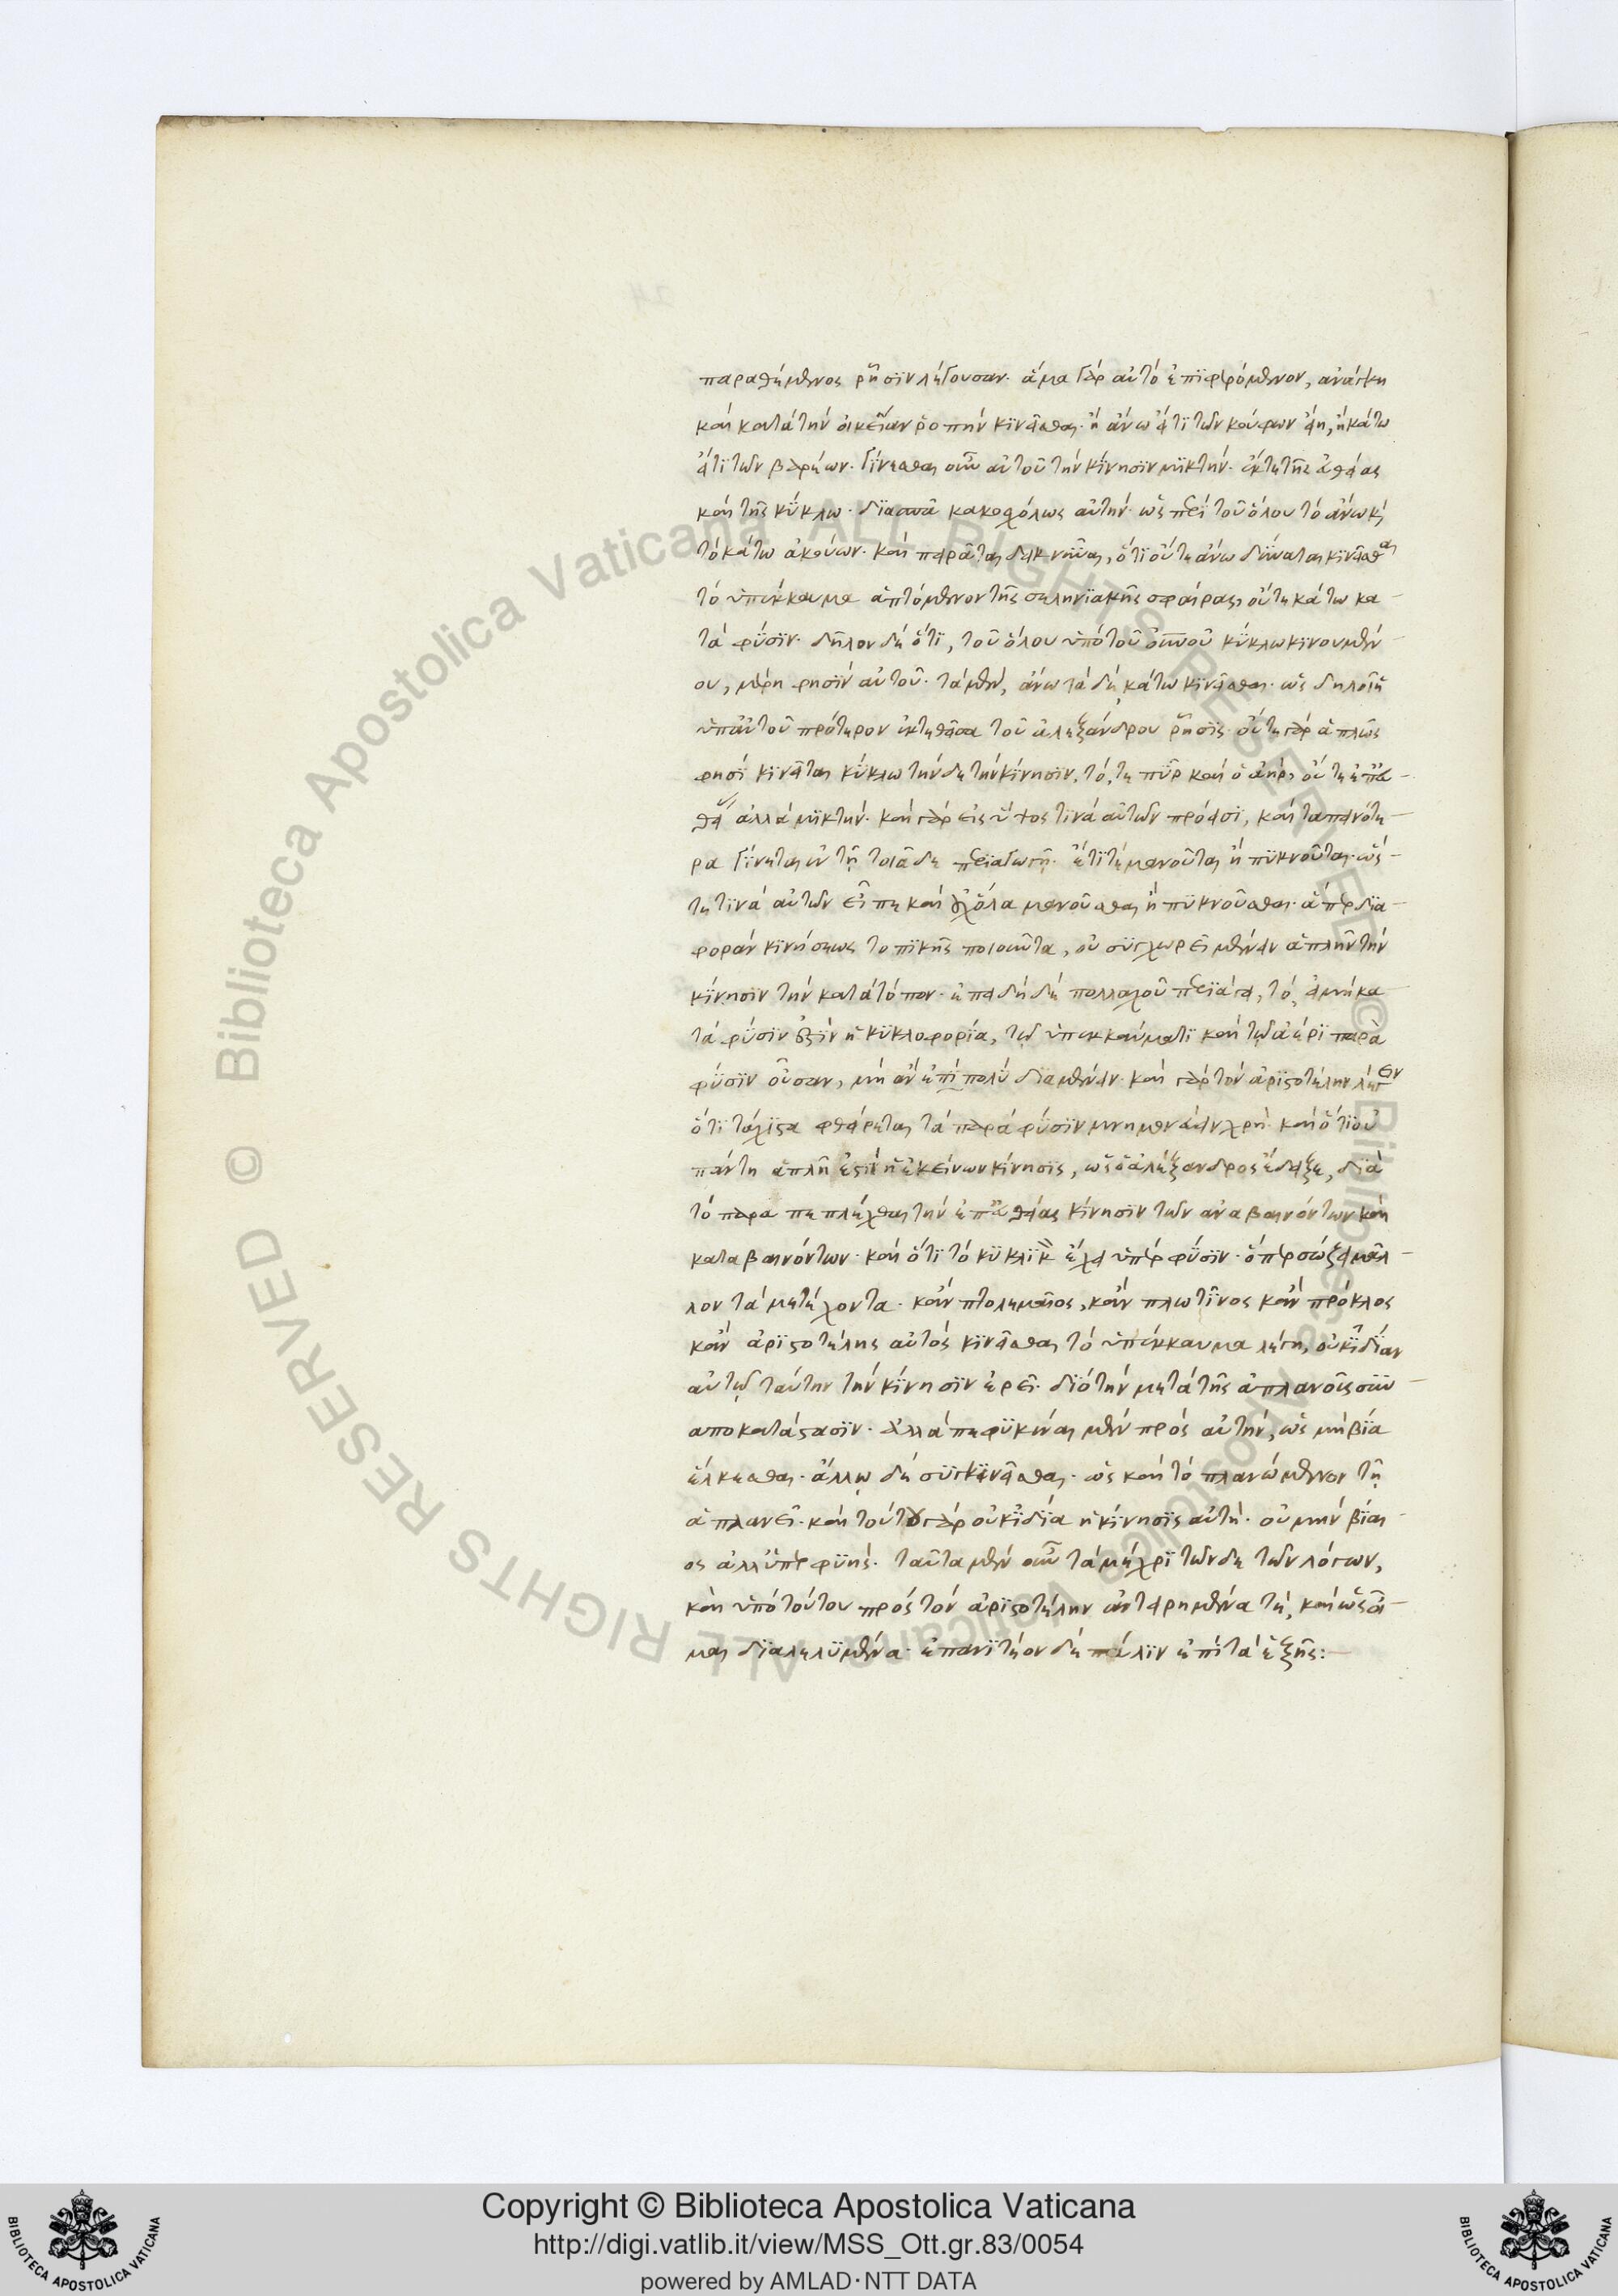 παραθέμενος ῥῆσιν λέγουσαν. ἅμα γὰρ αὐτὸ ἐπιφερόμενον, ἀνάγκη
καὶ κατὰ τὴν οἰκείαν ῥοπὴν κινεῖσθαι. ἢ ἄνω εἴ τι τῶν κούφων εἴη, ἢ κάτω
εἴ τι τῶν βαρέων. γίνεσθαι οὖν αὐτοῦ τὴν κίνησιν μικτήν. ἔκ τε τῆς εὐθείας
καὶ τῆς κύκλω. διασπᾶ κακοσχόλως αὐτήν. ὡς περὶ τοῦ ὅλου τὸ ἄνω καὶ
τὸ κάτω ἀκούων. καὶ πειρᾶται δεικνύναι, ὅτι οὔτε ἄνω δύναται κινεῖσθαι
τὸ ὑπέκκαυμα ἁπτόμενον τῆς σεληνιακῆς σφαίρας, οὔτε κάτω κα
τὰ φύσιν. δῆλον δὲ ὅτι, τοῦ ὅλου ὑπὸ τοῦ οὐνοῦ κύκλω κινουμέν
ου, μέρη φησὶν αὐτοῦ. τὰ μὲν, ἄνω τὰ δὲ, κάτω κινεῖσθαι. ὡς δηλοῖ ἡ
ὑπ' αὐτοῦ πρότερον ἐκτεθεῖσα τοῦ ἀλεξάνδρου ῥῆσις. οὔτε γὰρ ἁπλῶς
φησὶ κινεῖται κύκλω τήνδε τὴν κίνησιν, τό, τε πῦρ καὶ ὁ ἀήρ, οὔτε ἐπ' εὐ
θεῖ ἀλλὰ μικτήν. καὶ γὰρ εἰς ὕψος τινὰ αὐτῶν πρόεισι, καὶ ταπεινότε
ρα γίνεται ἐν τῇ τοιᾶδε περιαγωγῇ. ἔτι τε μανοῦται ἢ πυκνοῦται. ὥς
τε τινὰ αὐτῶν εἴ πη καὶ δι' ὅλα μανοῦσθαι ἢ πυκνοῦσθαι. ἅπερ δια
φορὰν κινήσεως τοπικῆς ποιοῦντα, οὐ συγχωρεῖ μένειν ἁπλῆν τὴν
κίνησιν τὴν κατὰ τόπον. ἐπειδὴ δὲ πολλαχοῦ περιάγει, τό, εἰ μὴ κα
τὰ φύσιν ἐστὶν ἡ κυκλοφορία, τῷ ὑπεκκαύματι καὶ τῷ ἀέρι παρὰ
φύσιν οὖσαν, μὴ ἂν ἐπὶ πολὺ διαμένειν. καὶ γὰρ τὸν ἀριστοτέλην λέγειν
ὅτι τάχιστα φθείρεται τὰ παρὰ φύσιν μεμνημονεύειν χρή. καὶ ὅτι οὐ
πάντη ἁπλῆ ἐστὶν ἡ ἐκείνων κίνησις, ὡς ὁ ἀλέξανδρος ἔδειξε, διὰ
τὸ παρα πεπλέχθαι τὴν ἐπ' εὐθείας κίνησιν τῶν ἀναβαινόντων καὶ
καταβαινόντων. καὶ ὅτι τὸ κυκλικὸν ἔχει ὑπὲρ φύσιν. ὅπερ σώζει μᾶλ
λον τὰ μετέχοντα. κἂν πτολεμαῖος, κἂν πλωτῖνος κἂν πρόκλος
κἂν ἀριστοτέλης αὐτὸς κινεῖσθαι τὸ ὑπέκκαυμα λέγη, οὐκ ἰδίαν
αὐτῷ ταύτην τὴν κίνησιν ἐρεῖ. διὸ τὴν μετὰ τῆς ἀπλανοῦς συν
αποκατάστασιν. ἀλλὰ πεφυκέναι μὲν πρὸς αὐτὴν, ὡς μὴ βία
ἕλκεσθαι. ἄλλῳ δὲ συγκινεῖσθαι. ὡς καὶ τὸ πλανώμενον τῇ
ἀπλανεῖ. καὶ τούτου γὰρ οὐκ ἰδία ἡ κίνησις αὐτή. οὐ μὴν βίαι
ος ἀλλ' ὑπερφυής. ταῦτα μὲν οὖν τὰ μέχρι τῶνδε τῶν λόγων,
καὶ ὑπὸ τούτου πρὸς τὸν ἀριστοτέλην ἀντειρημένα τέ, καὶ ὡς οἶ
μαι διαλελυμένα. ἐπανιτέον δὲ πάλιν ἐπὶ τὰ ἑξῆς:
Copyright © Biblioteca Apostolica Vaticana
http://digi.vatlib.it/view/MSS_Ott.gr.83/0054
powered by AMLAD·NTT DATA